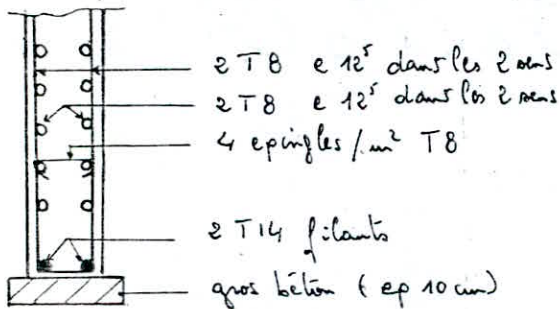 2 T 8 e 12⁵ dans les 2 sens
2 T 8 e 12⁵ dans les 2 sens
4 epingles / m² T8
2 T 14 filants
gros béton ( ep 10 cm)